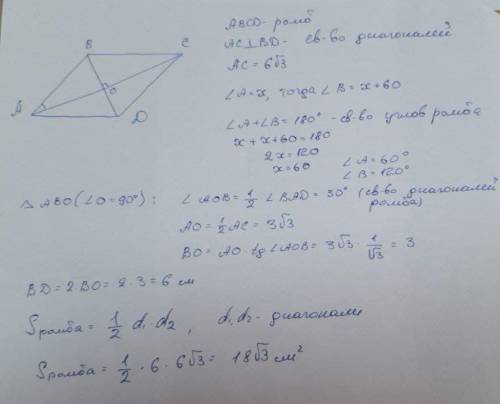 B
C
A
D
O
ABCD - ромб
AC⊥BD - св-во диагоналей
AC = 6√3
∠A = x, тогда ∠B = x+60
∠A+∠B = 180° - св-во углов ромба
x + x+60 = 180
2x = 120
x = 60
∠A = 60°
∠B = 120°
△ABO (∠O = 90°): ∠AOB = 1/2 ∠BAD = 30° (св-во диагоналей
ромба)
AO = 1/2 AC = 3√3
BO = AO · tg ∠AOB = 3√3 · 1/√3 = 3
BD = 2BO = 2 · 3 = 6 см
Sромба = 1/2 d₁ · d₂, d₁, d₂ - диагонали
Sромба = 1/2 · 6 · 6√3 = 18√3 см²